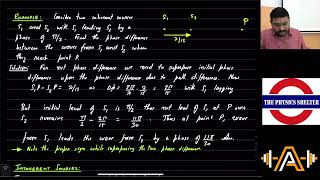 Example: Consider two coherent sources
S₁ and S₂ with S₁ leading S₂ by a
phase of π/2. Find the phase difference
between the waves from S₁ and S₂ when
they reach point P.
S₁ S₂ P
λ/15
Solution: For net phase difference we need to superpose initial phase
difference upon the phase difference due to path difference. Now
S₁P - S₂P = λ/15 ⇒ Δφ = 2π/λ × λ/15 = 2π/15 with S₁ lagging
But initial lead of S₁ is π/2 thus net lead of S₁ at P over
S₂ remains π/2 - 2π/15 = 11π/30. Thus at point P, wave
from S₁ leads the wave from S₂ by a phase of 11π/30
→ Note the proper sign while superposing the two phase differences
Incoherent Sources:
THE PHYSICS SHELTER